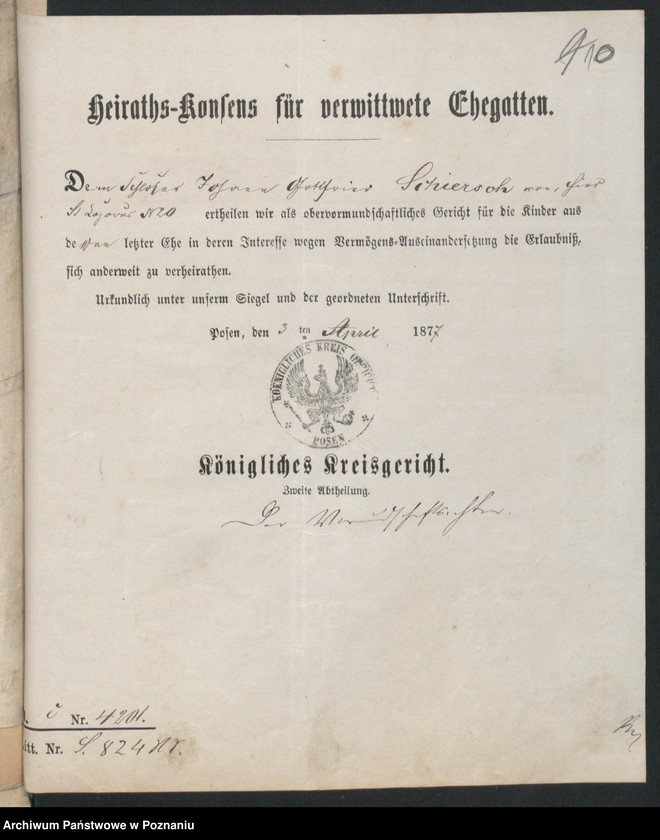 10
Heiraths-Konsens für verwittwete Ehegatten.
Dem Schlosser Johann Gottfried Schiersch von hier
St Lazarus No ertheilen wir als obervormundschaftliches Gericht für die Kinder aus
de ssen letzter Ehe in deren Interesse wegen Vermögens-Auseinandersetzung die Erlaubniß,
sich anderweit zu verheirathen.
Urkundlich unter unserm Siegel und der geordneten Unterschrift.
Posen, den 3 ten April 1877
KOENIGLICHES KREIS GERICHT
POSEN
Königliches Kreisgericht.
Zweite Abtheilung.
Der Vormundschaftsrichter.
Nr.
itt. Nr. S. 824
Archiwum Państwowe w Poznaniu